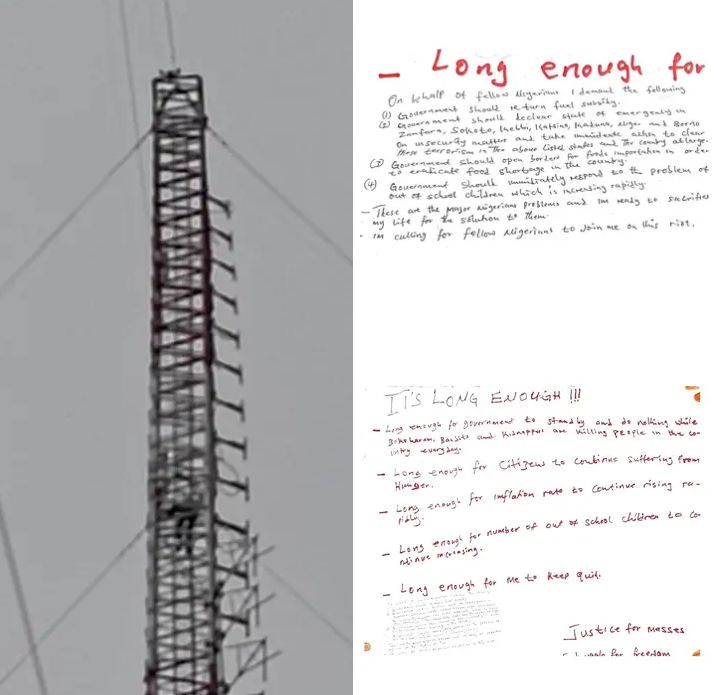 - Long enough for
On behalf of fellow Nigerians I demand the following
(1) Government should return fuel subsidy.
(2) Government should declear state of emergency in
Zamfara, Sokoto, Kebbi, Katsina, Kaduna, Niger and Borno
on insecurity matter and take immidiate action to clear
these terrorism in the above listed states and the country at large.
(3) Government should open borders for foods importation in order
to eradicate food shortage in the country.
(4) Government should immidiately respond to the problem of
out of school children which is increasing rapidly.
- These are the major Nigerians problems and im ready to sacrifies
my life for the solution to them.
- im calling for fellow Nigerians to join me on this riot.
IT'S LONG ENOUGH!!!
- Long enough for government to stand by and do nothing while
Bokoharam, Bandits and Kidnappers are killing people in the co-
untry everyday.
- Long enough for Citizens to continue suffering from
Hunger.
- Long enough for inflation rate to continue rising ra-
pidly.
- Long enough for number of out of school children to co-
ntinue increasing.
- Long enough for me to keep quit.
Justice for masses
for freedom